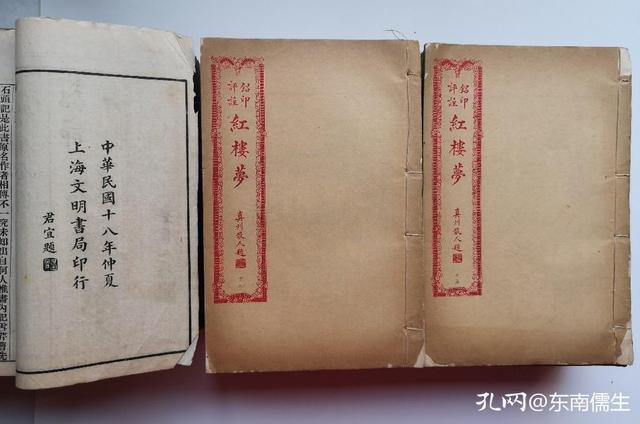 石頭記是此書原名作者相傳不一究未知出自何人惟書內記雪芹曹先
中華民國十八年仲夏
上海文明書局印行
君宜題
鉛印
評註
紅樓夢
真州散人題
鉛印
評註
紅樓夢
真州散人題
孔网@东南儒生